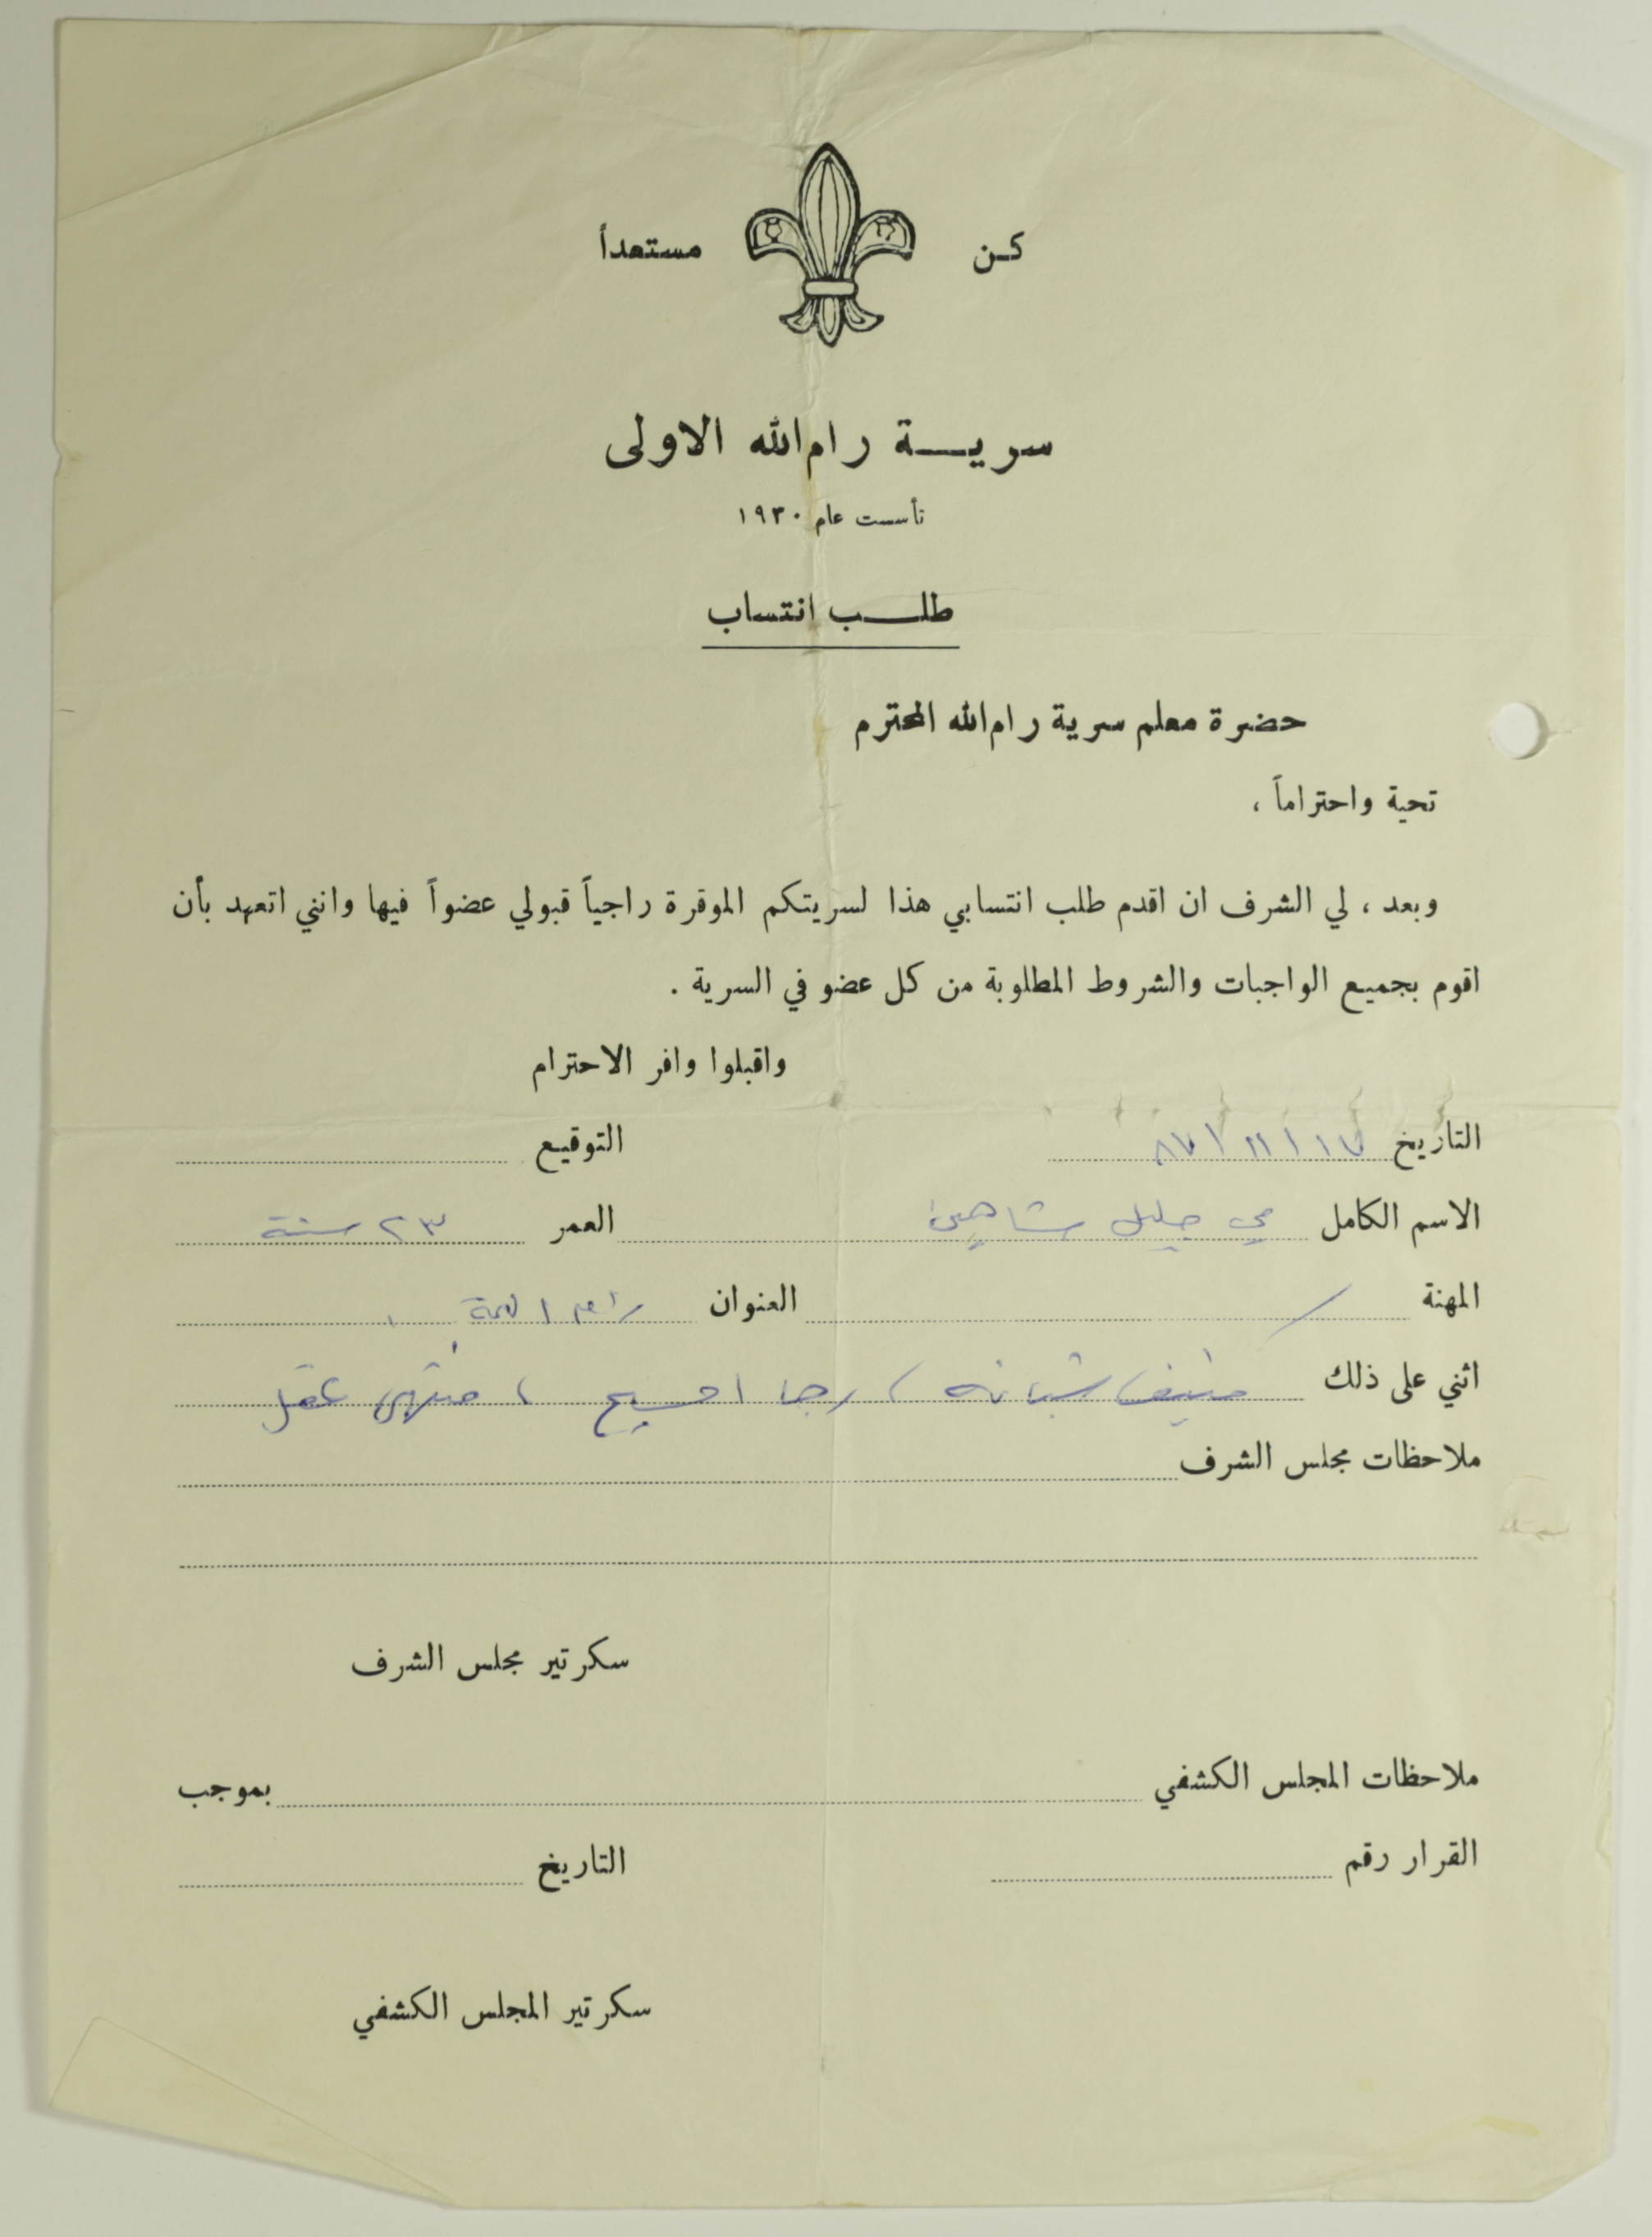 كن مستعداً
سرية رام الله الاولى
تأسست عام ١٩٣٠
طلب انتساب
حضرة معلم سرية رام الله المحترم
تحية واحتراماً ،
وبعد ، لي الشرف ان اقدم طلب انتسابي هذا لسريتكم الموقرة راجياً قبولي عضواً فيها وانني اتعهد بأن
اقوم بجميع الواجبات والشروط المطلوبة من كل عضو في السرية .
واقبلوا وافر الاحترام
التاريخ ١٧ / ١١ / ٨٧ التوقيع
الاسم الكامل مي جليل شاهين العمر ٢٣ سنة
المهنة / العنوان رام الله
اثني على ذلك شبانه ، رجا ، منتهى عقل
ملاحظات مجلس الشرف
سكرتير مجلس الشرف
ملاحظات المجلس الكشفي بموجب
القرار رقم التاريخ
سكرتير المجلس الكشفي